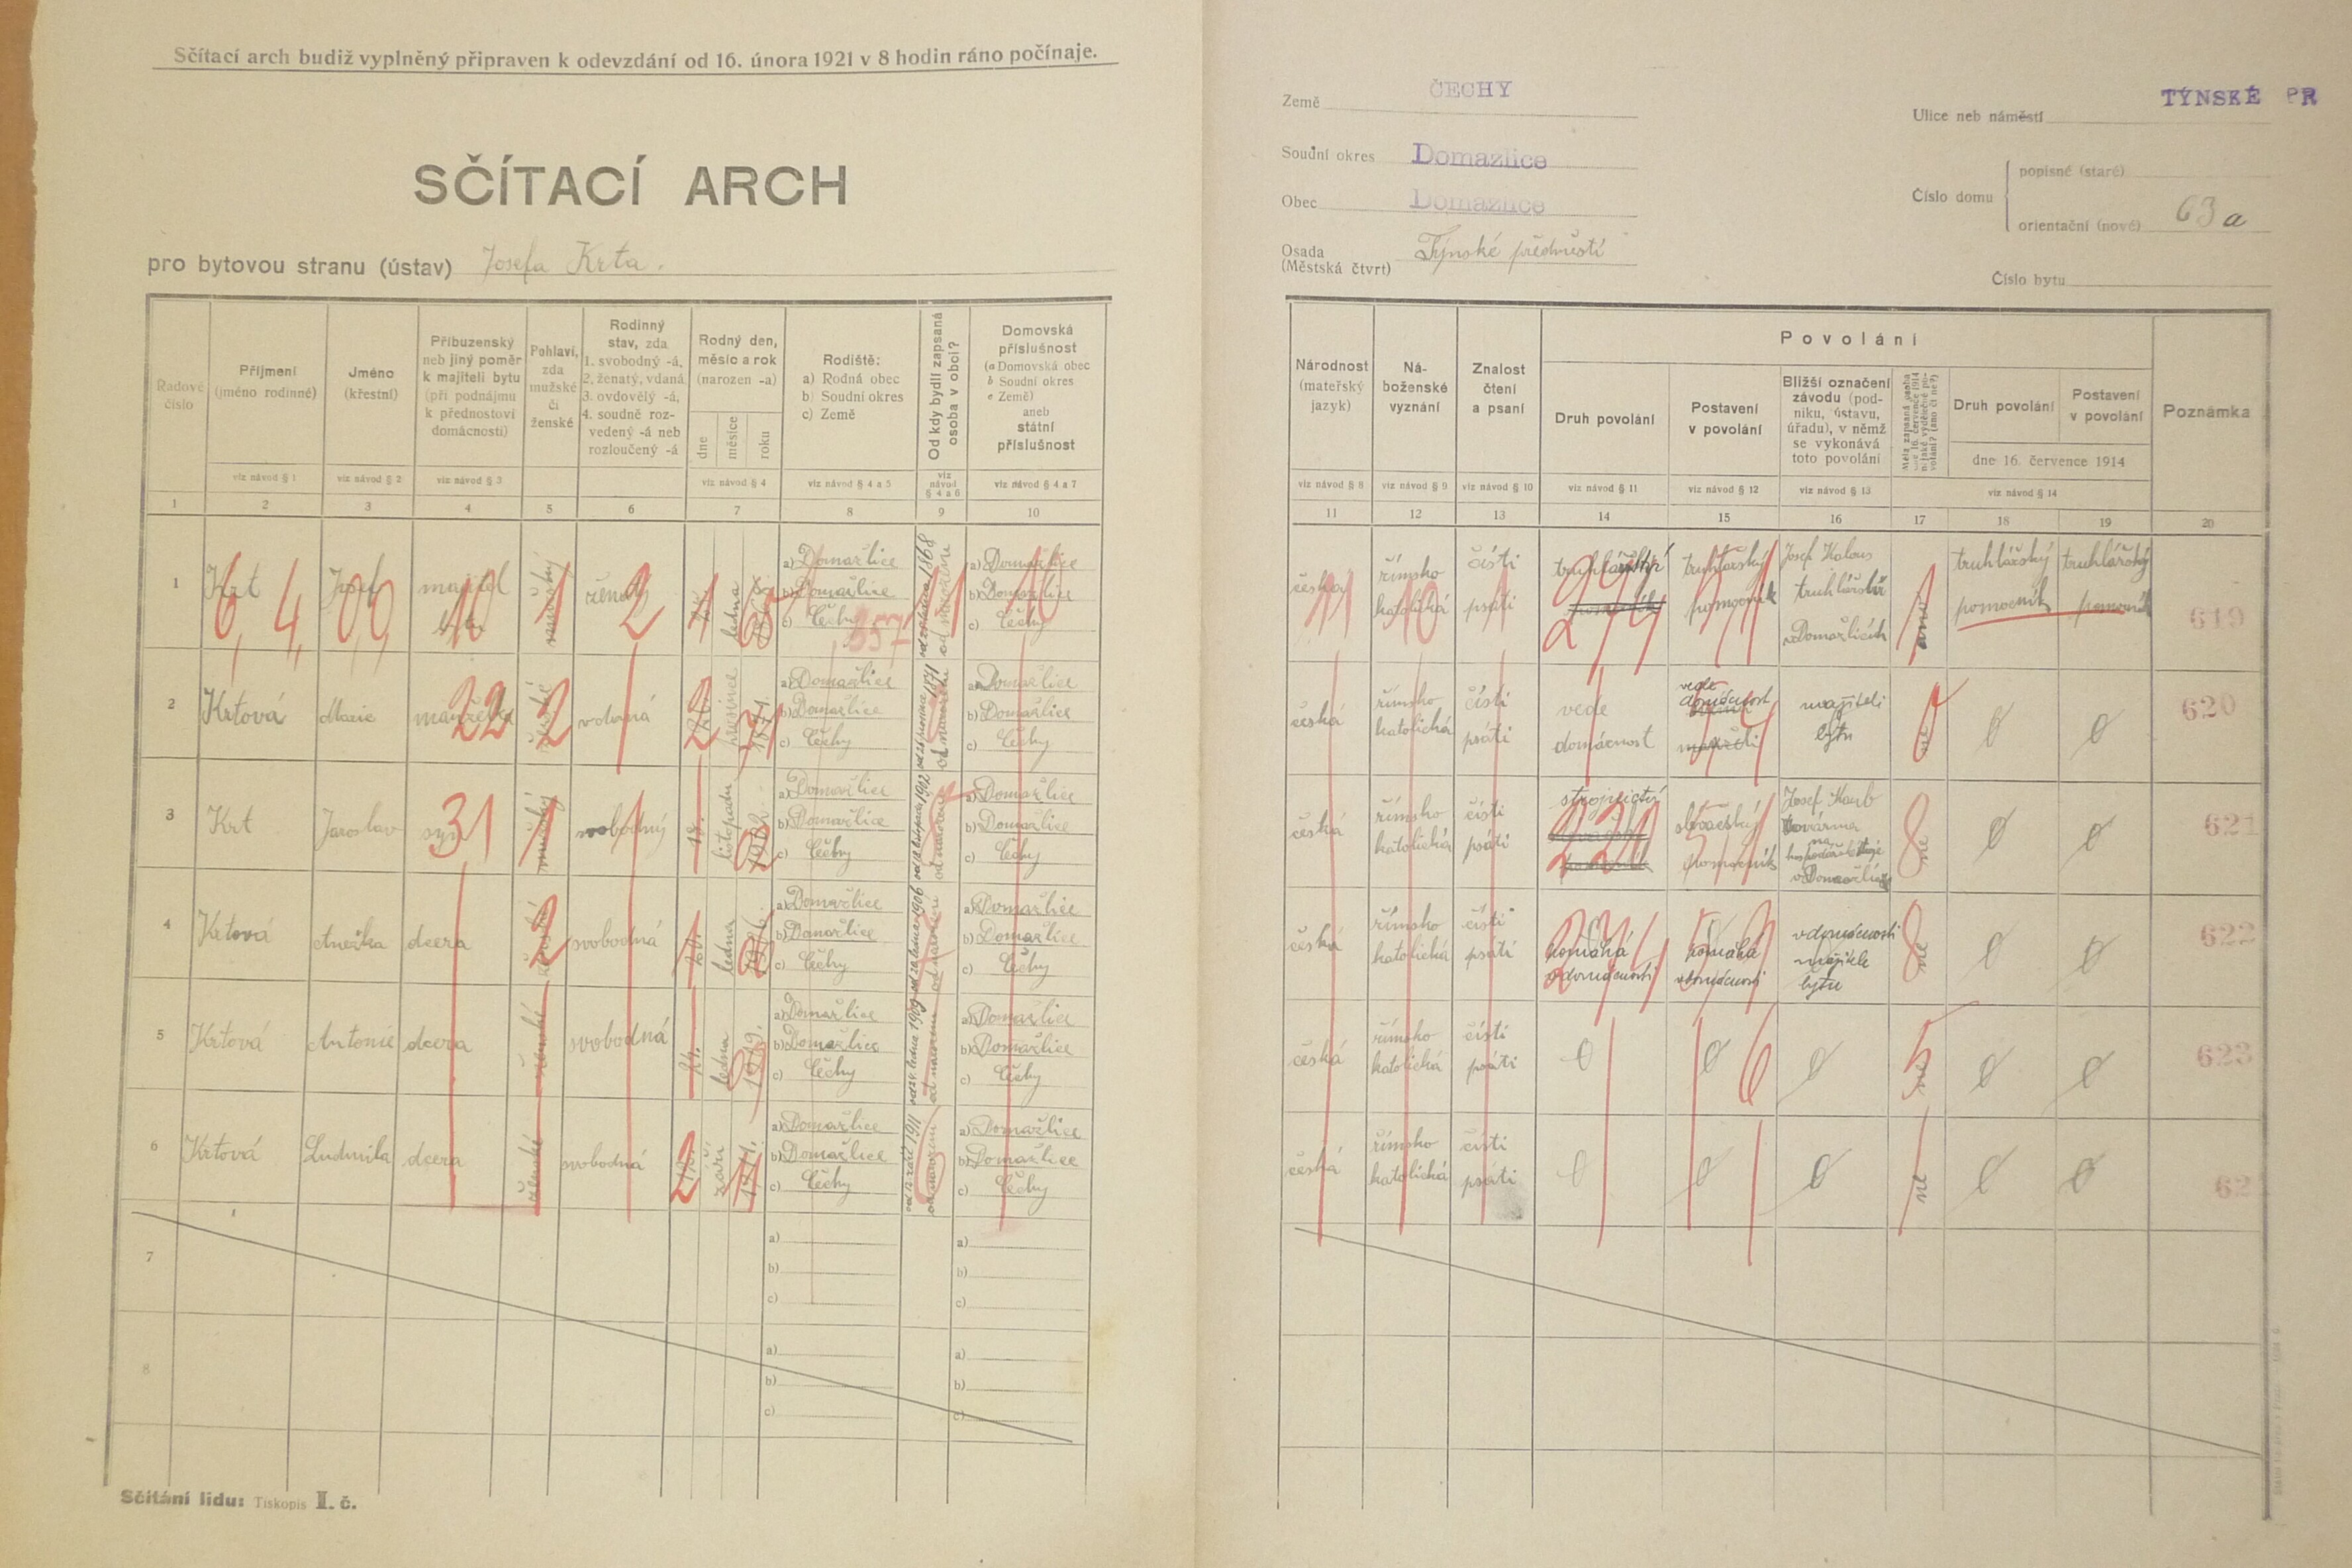 Sčítací arch budiž vyplněný připraven k odevzdání od 16. února 1921 v 8 hodin ráno počínaje.
SČÍTACÍ ARCH
pro bytovou stranu (ústav) Josefa Krta.
Řadové číslo
Příjmení
(jméno rodinné)
Jméno
(křestní)
Příbuzenský
neb jiný poměr
k majiteli bytu
(při podnájmu
k přednostovi
domácnosti)
Pohlaví,
zda
mužské
či
ženské
Rodinný
stav, zda
1. svobodný -á,
2. ženatý, vdaná,
3. ovdovělý -á,
4. soudně roz-
vedený -á neb
rozloučený -á
Rodný den,
měsíc a rok
(narozen -a)
dne
měsíce
roku
Rodiště:
a) Rodná obec
b) Soudní okres
c) Země
Od kdy bydlí zapsaná
osoba v obci?
Domovská
příslušnost
(a Domovská obec
b Soudní okres
c Země)
aneb
státní
příslušnost
viz návod § 1
viz návod § 2
viz návod § 3
viz návod § 4
viz návod § 4 a 5
viz návod § 4 a 6
viz návod § 4 a 7
1 2 3 4 5 6 7 8 9 10
1 Krt Josef majitel bytu mužský ženatý ledna
a) Domažlice
b) Domažlice
c) Čechy
357
od narození
a) Domažlice
b) Domažlice
c) Čechy
2 Krtová Marie manželka ženské vdaná prosince 1871.
a) Domažlice
b) Domažlice
c) Čechy
od narození
a) Domažlice
b) Domažlice
c) Čechy
3 Krt Jaroslav syn mužský svobodný listopadu 1902
a) Domažlice
b) Domažlice
c) Čechy
od narození
a) Domažlice
b) Domažlice
c) Čechy
4 Krtová Anežka dcera ženské svobodná 20. ledna 1906.
a) Domažlice
b) Domažlice
c) Čechy
od narození
a) Domažlice
b) Domažlice
c) Čechy
5 Krtová Antonie dcera ženské svobodná 24. ledna 1909.
a) Domažlice
b) Domažlice
c) Čechy
od narození
a) Domažlice
b) Domažlice
c) Čechy
6 Krtová Ludmila dcera ženské svobodná září 1911.
a) Domažlice
b) Domažlice
c) Čechy
od narození
a) Domažlice
b) Domažlice
c) Čechy
7
a)
b)
c)
a)
b)
c)
8
a)
b)
c)
a)
b)
c)
Sčítání lidu: Tiskopis I. č.
Země ČECHY
Soudní okres Domazlice
Obec Domazlice
Osada
(Městská čtvrt) Týnské předměstí
Ulice neb náměstí TÝNSKÉ PR
Číslo domu
popisné (staré)
orientační (nové) 63a
Číslo bytu
Národnost
(mateřský
jazyk)
Ná-
boženské
vyznání
Znalost
čtení
a psaní
Povolání
Druh povolání
Postavení
v povolání
Bližší označení
závodu (pod-
niku, ústavu,
úřadu), v němž
se vykonává
toto povolání
Měla zapsaná osoba
dne 16. července 1914
nějaké výdělečné po-
volání? (ano či ne?)
Druh povolání
Postavení
v povolání
dne 16. července 1914
Poznámka
viz návod § 8
viz návod § 9
viz návod § 10
viz návod § 11
viz návod § 12
viz návod § 13
viz návod § 14
11 12 13 14 15 16 17 18 19 20
česká
římsko
katolická
čísti
psáti
truhlářství
truhlářský
pomocník
Josef
truhlářství
v Domažlicích
ano
truhlářský
pomocník
truhlářský
pomocník
619
česká
římsko
katolická
čísti
psáti
vede
domácnost
vede
domácnost
majiteli
bytu
ne
0
0
620
česká
římsko
katolická
čísti
psáti
strojnictví
pomocník
Josef
továrna
na
v Domažlicích
ne
0
0
621
česká
římsko
katolická
čísti
psáti
pomáhá
v domácnosti
pomáhá
v domácnosti
v domácnosti
majitele
bytu
ne
0
0
622
česká
římsko
katolická
čísti
psáti
0
0
0
ne
0
0
623
česká
římsko
katolická
čísti
psáti
0
0
0
ne
0
0
62